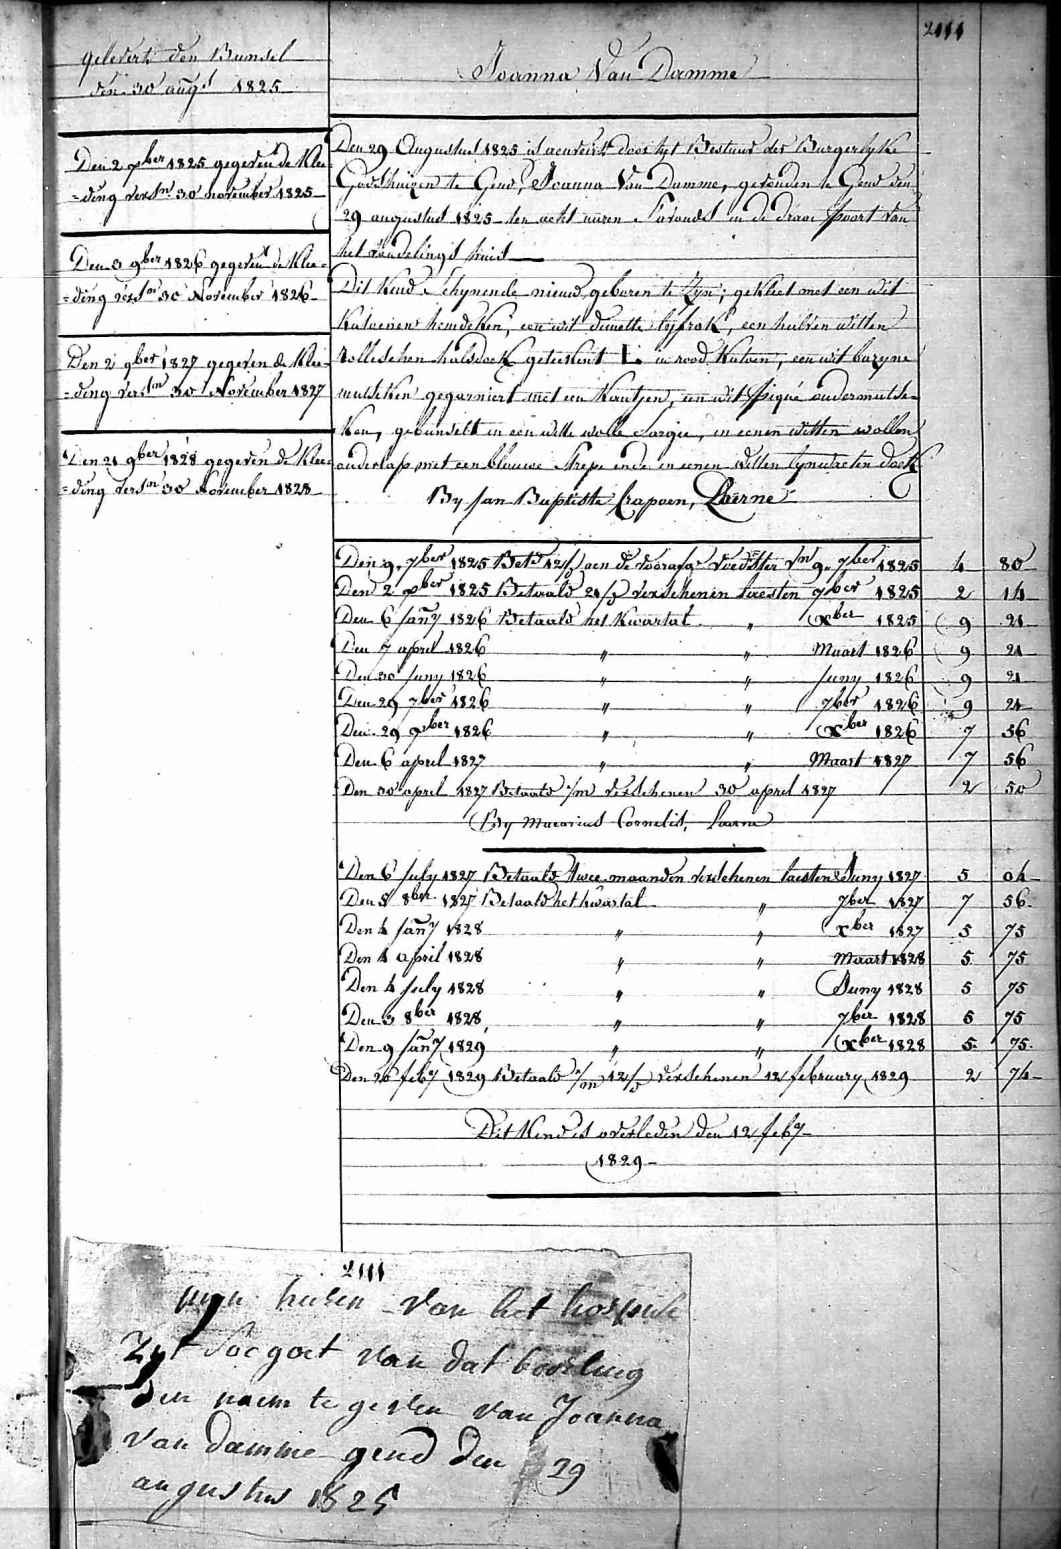 2111
gelevert den Bunsel
den 30 augt 1825
Joanna Van Damme
Den 2 xber 1825 gegeven de Klee=
=ding versn 30 november 1825
Den 3 9ber 1826 gegeven de Klee=
=ding versn 30 November 1826
Den 2 9ber 1827 gegeven de Klee=
=ding versn 30 November 1827
Den 21 9ber 1828 gegeven de Klee=
=ding versn 30 November 1828
Den 29 Augustus 1825 is aenveird door het Bestuur der Burgerlyke
Godshuizen te Gend, Joanna Van Damme, gevonden te Gend den
29 augustus 1825 ten acht uren S'avonds in de draai poort van
het vondelings huis
Dit Kind Schynende nieuw geboren te Zyn; gekleet met een wit
Katoenen hemdeken, een wit demette lyfrok, een halven witten
nolleschen halsdoek geteekent L. in rood Katoen, een wit bazyne
mutseken gegarniert met een Kantjen, een wit piqué ondermutse=
ken, gebunselt in een witte wolle Sargie, in eenen witten wollen
onderlap met een blauwe Strepe ende in eenen witten lynwaeten doek
By Jan Baptiste Crapoen, Laerne
Den 9 7ber 1825 Betd 12/d aen de voorafge voedster vn 9 7ber 1825 4 80
Den 2 xber 1825 Betaald 21/d verschenen laesten 7ber 1825 2 14
Den 6 Jany 1826 Betaald het Kwartal " xber 1825 9 21
Den 7 april 1826 " " Maart 1826 9 21
Den 30 Juny 1826 " " Juny 1826 9 21
Den 29 7ber 1826 " " 7ber 1826 9 21
Den 29 xber 1826 " " xber 1826 7 56
Den 6 april 1827 " " Maart 1827 7 56
Den 30 april 1827 Betaald 1/m verschenen 30 april 1827 2 50
By Macarius Cornelis, Laerne
Den 6 July 1827 Betaald twee maanden verschenen laesten Juny 1827 5 04
Den 5 8ber 1827 Betaald het kwartal " 7ber 1827 7 56
Den 4 Jany 1828 " " xber 1827 5 75
Den 4 april 1828 " " Maart 1828 5 75
Den 4 July 1828 " " Juny 1828 5 75
Den 3 8ber 1828 " " 7ber 1828 5 75
Den 9 Jany 1829 " " xber 1828 5 75
Den 26 feby 1829 Betaald 1/m 12/d verschenen 12 february 1829 2 74
Dit Kind is overleden den 12 feby
1829
2111
myn heeren van het hospise
Zyt Soe goet van dat boorling
den naem te geven van Joanna
van damme gend den 29
augustus 1825